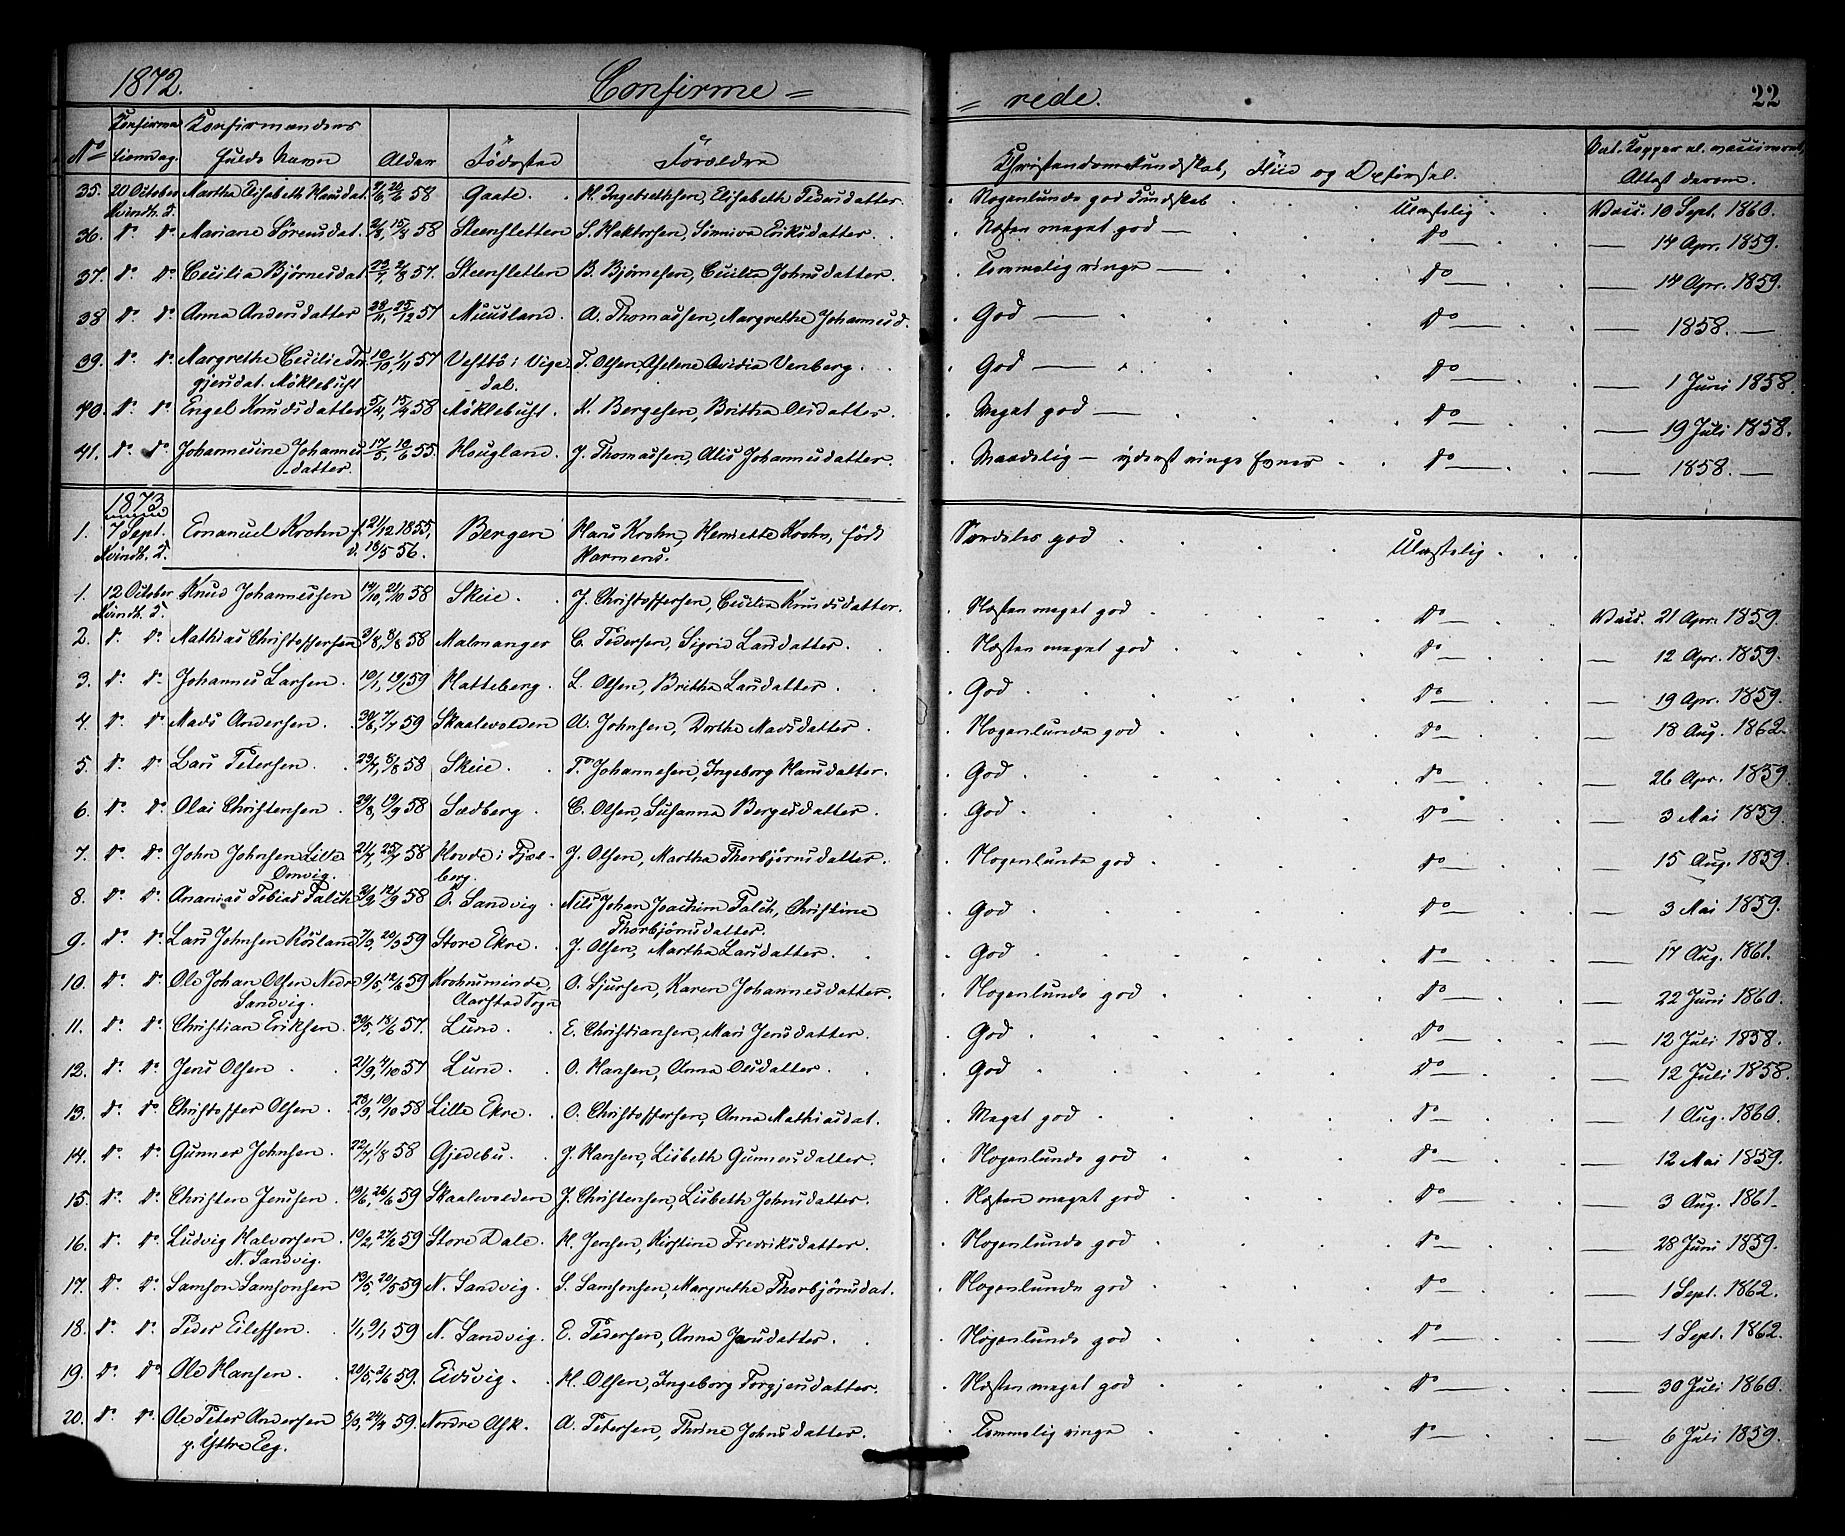 1872. Confirme = = rede. 22
No Confirma tionsdag. Konfirmandens fulde Navn Alder Födested Forældre Christendomskundskab, Flid og Opförsel. Nat. Kopper el. vaccineret, Attest derom.
35. 20 October Martha Elisabeth Hansdat. 58 Gaate. H. Ingebrethsen, Elisabeth Pedersdatter. Nogenlunde god Kundskab Ulastelig Vacc. 10 Sept. 1860.
Kvindh. T.
36. do do Mariane Sörensdat. 58 Steensletten S. Haktorsen, Sönniva Eriksdatter. Næsten meget god — do — 14 Apr. 1859.
37. do do Cecilia Björnesdat. 57. Steensletten B. Björnesen, Cecilia Johnsdatter. Temmelig ringe — do — 14 Apr. 1859.
38 do do Anna Andersdatter 28/11, 25/12 57 Muusland. A. Thomassen, Margrethe Johannesd. God — do — 1858. —
39. do do Margrethe Cecilie Tor- 10/10, 1/11 57 Vestbö i Vige- T. Olsen, Helene Ovidia Venberg. God — do — 1 Juni 1858.
gjersdat. Möklebust dal.
40. do do Engel Knudsdatter 5/4, 15/4 58 Möklebust. K. Bergesen, Britha Olsdatter. Meget god — do — 19 Juli 1858.
41. do do Johannesine Johannes- 17/5, 10/6 55. Hougland. J. Thomassen, Alis Johannesdatter. Maadelig — yderst ringe Evner do — 1858. —
datter.
1873
1. 7 Sept. Emanuel Krohn f. 21/12 1855, Bergen Hans Krohn, Henriette Krohn, föd Særdeles god Ulastelig
Kvindh. T. d. 18/5 56. Harmens.
1. 12 October Knud Johannessen 14/10, 21/10 58 Skeie. J. Christoffersen, Cecilia Knudsdatter. Næsten meget god do Vacc. 21 Apr. 1859.
Kvindh. T.
2. do do Mathias Christoffersen 58 Malmanger C. Pedersen, Sigrid Larsdatter. Næsten meget god do — 12 Apr. 1859.
3. do do Johannes Larsen. 10/1, 19/1 59 Hatteberg. L. Olsen, Britha Larsdatter. God do — 19 Apr. 1859.
4. do do Mads Andersen. 30/6, 7/7 59 Skaalevolden A. Johnsen, Dorthe Madsdatter. Nogenlunde god do — 18 Aug. 1862.
5. do do Lars Petersen. 58 Skeie. P. Johannesen, Ingeborg Hansdatter. God do — 26 Apr. 1859.
6. do do Olai Christensen. 29/8, 19/9 58 Sædberg. C. Olsen, Susanna Bergesdatter. God do — 3 Mai 1859.
7. do do John Johnsen Lille 21/7, 25/7 58 Hovde i Fjel- J. Olsen, Martha Thorbjörnsdatter. Nogenlunde god do — 15 Aug. 1859.
Omvig. berg.
8. do do Ananias Tobias Falch 2/9, 12/9 58 Ö. Sandvig. Nils Johan Joachim Falch, Christine God do — 3 Mai 1859.
Thorbjörnsdatter.
9. do do Lars Johnsen Rösland 7/3, 20/3 59 Store Ekre. J. Olsen, Martha Larsdatter. God do — 17 Aug. 1861.
10. do do Ole Johan Olsen Nedre 9/5, 12/6 59 Krohnsminde, O. Sjursen, Karen Johannesdatter. Nogenlunde god do — 22 Juni 1860.
Sandvig. Aarstad Sogn
11. do do Christian Eriksen. 30/5, 18/6 57. Lund. E. Christiansen, Mari Jensdatter. God do — 12 Juli 1858.
12. do do Jens Olsen 21/9, 4/10 57 Lund. O. Hansen, Anna Olsdatter. God do — 12 Juli 1858.
13. do do Christoffer Olsen. 23/9, 10/10 58 Lille Ekre. O. Christoffersen, Anna Mathiasdat. Meget god do — 1 Aug. 1860.
14. do do Gunner Johnsen. 22/7, 1/8 58 Gjedebu. J. Hansen, Lisbeth Gunnersdatter. Nogenlunde god do — 12 Mai 1859.
15. do do Christen Jensen. 19/6, 26/6 59 Skaalevolden J. Christensen, Lisbeth Johnsdatter. Næsten meget god do — 3 Aug. 1861.
16. do do Ludvig Halvorsen 19/2, 27/2 59 Store Dale. H. Jensen, Kirstine Fredriksdatter. Nogenlunde god do — 28 Juni 1859.
N. Sandvig.
17. do do Samson Samsonsen 13/5, 20/5 59 N. Sandvig. S. Samsonsen, Margrethe Thorbjörnsdat. Nogenlunde god do — 1 Sept. 1862.
18. do do Peder Eilefsen. 1/1, 9/1 59 N. Sandvig. E. Pedersen, Anna Jansdatter. Nogenlunde god do — 1 Sept. 1862.
19. do do Ole Hansen. 20/5, 2/6 59. Eidsvig. H. Olsen, Ingeborg Torgjersdatter. Næsten meget god do — 30 Juli 1860.
20. do do Ole Peter Andersen 59. Nordre Ask. A. Petersen, Thrine Johnsdatter. Temmelig ringe do — 6 Juli 1859.
p. Yttre Eeg.